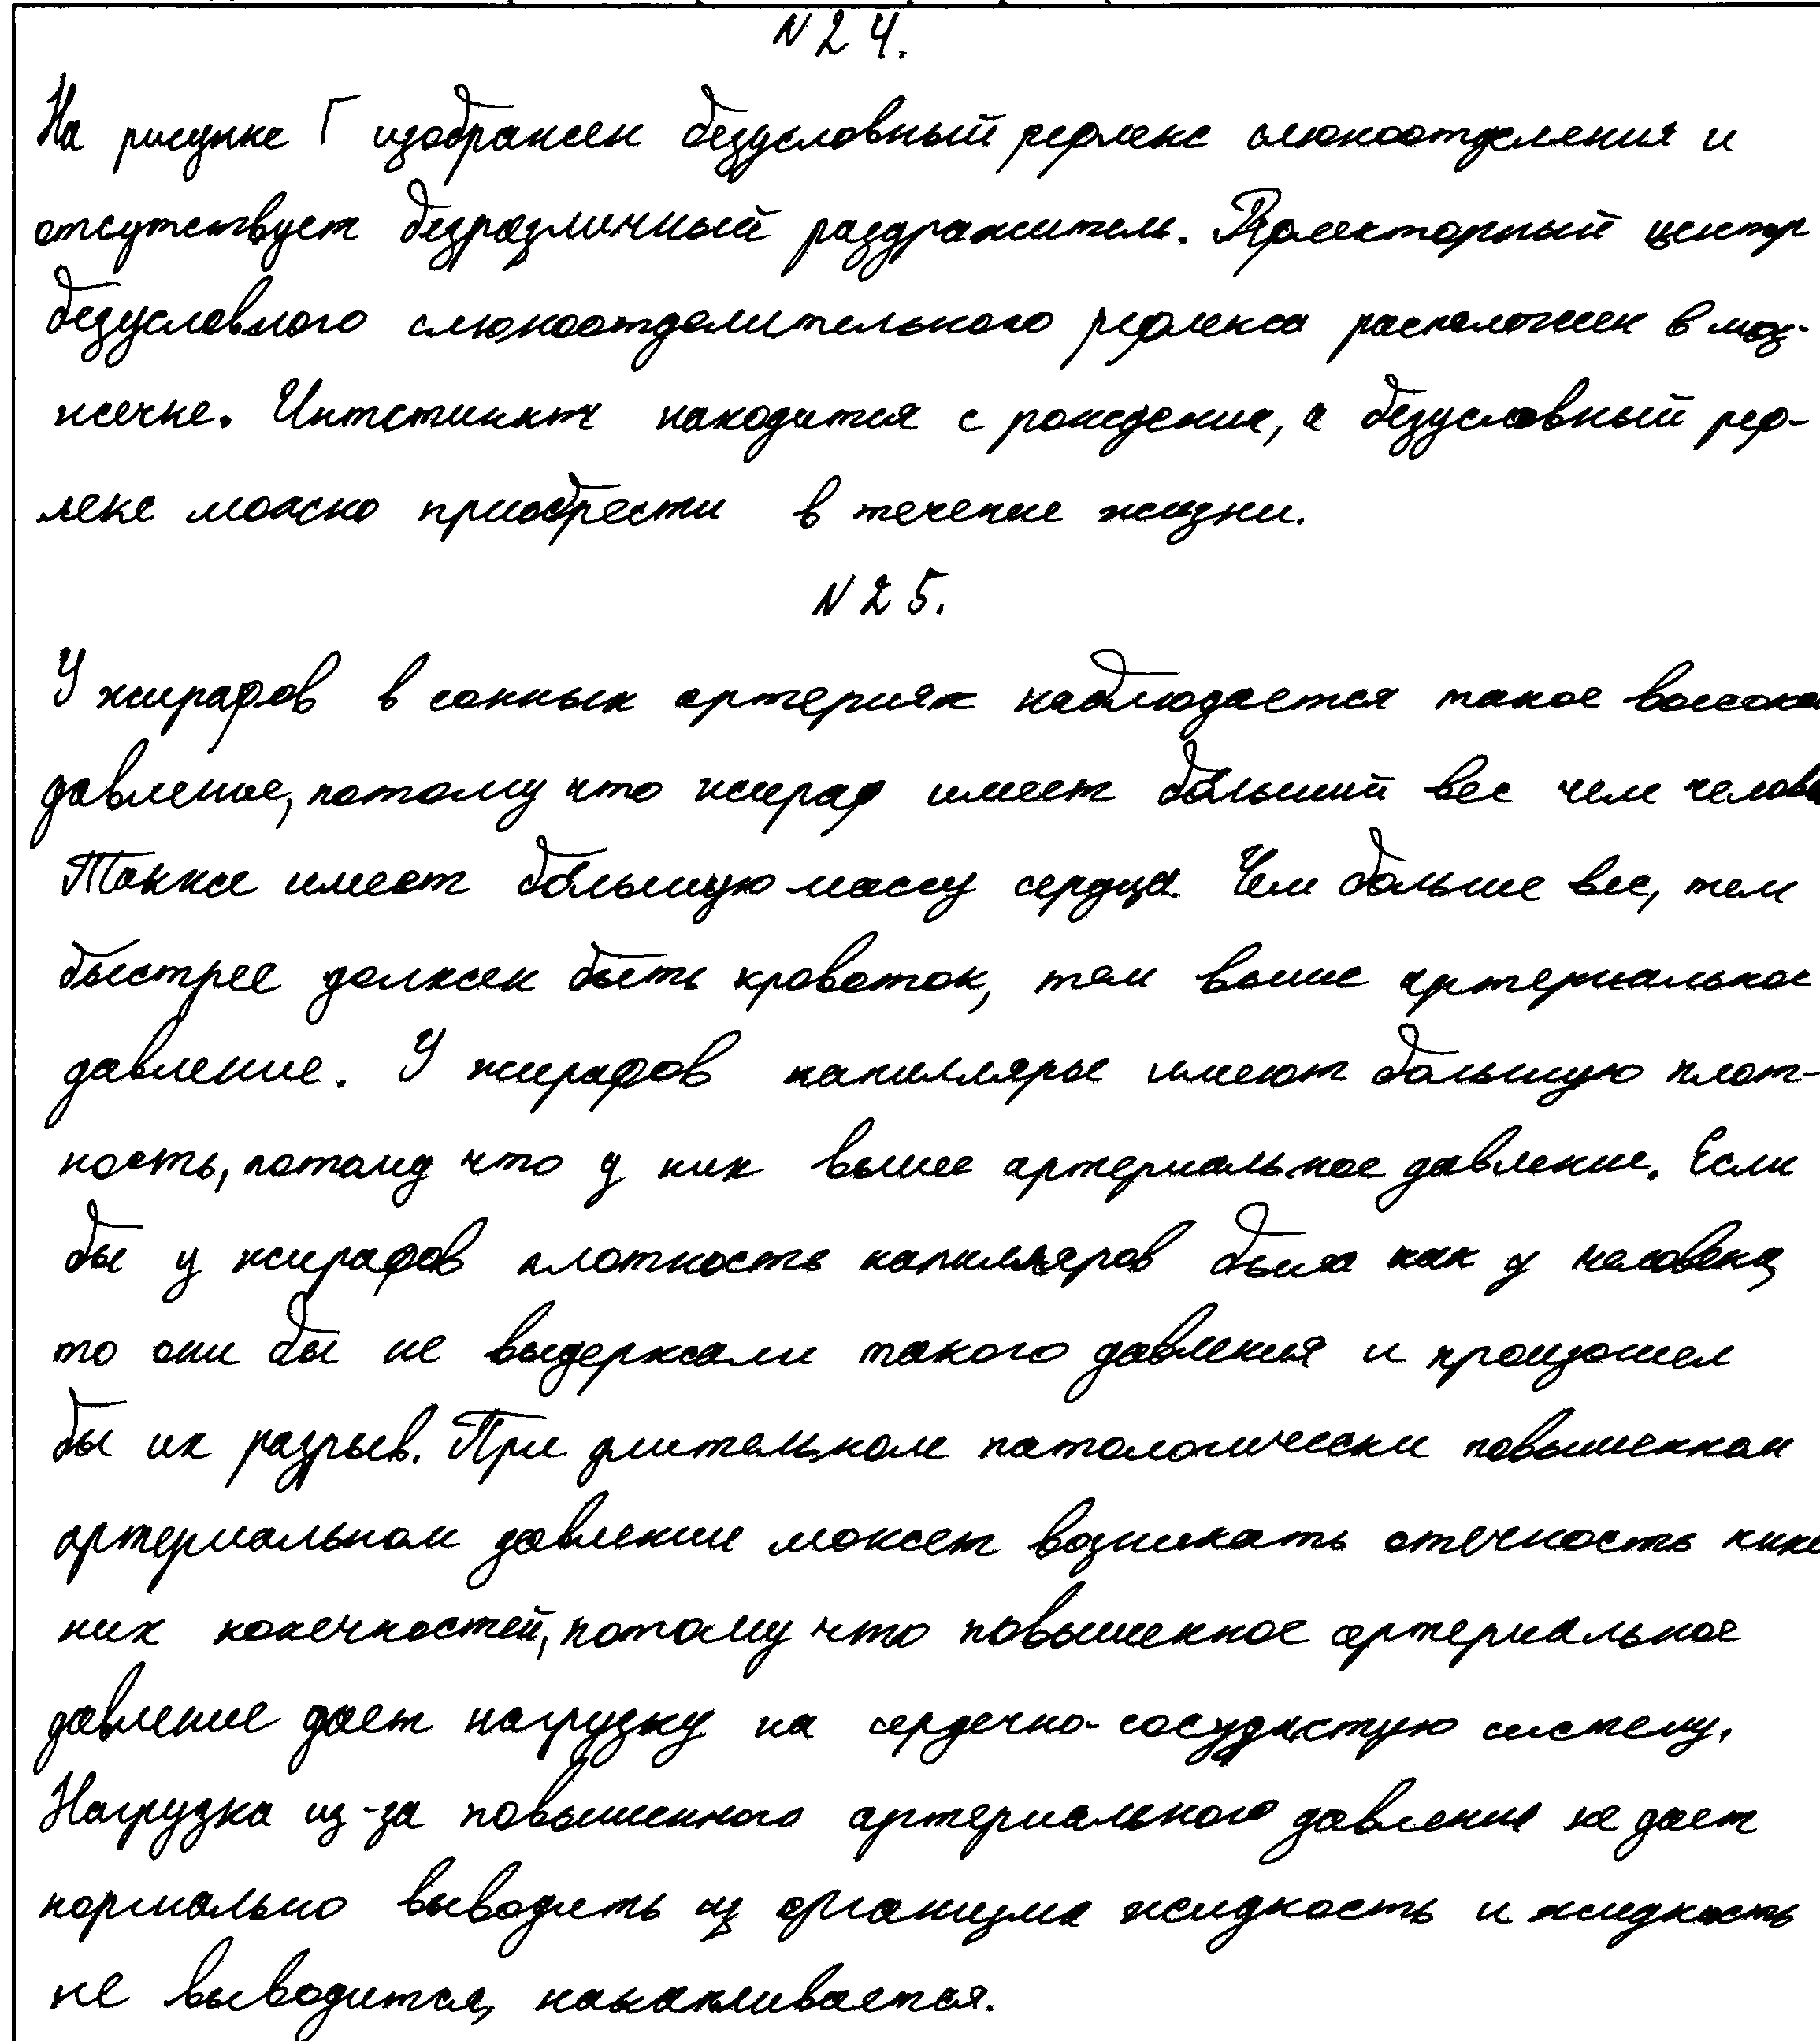 N 24.
На рисунке Г изображен безусловный рефлекс слюноотделения и
отсутствует безразличный раздражитель. Рефлекторный центр
безусловного слюноотделительного рефлекса расположен в моз-
жечке. Интстинкт находится с рождения, а безусловный реф-
лекс можно приобрести в течение жизни.
N 25.
У жирафов в сонных артериях наблюдается такое высокое
давление, потому что жираф имеет больший вес чем
Также имеет большую массу сердца. Чем больше вес, тем
быстрее должен быть кровоток, тем выше артериальное
давление. У жирафов капилляры имеют большую плот-
ность, потому что у них выше артериальное давление. Если
бы у жирафов плотность капилляров была как у человека,
то они бы не выдержали такого давления и произошел
бы их разрыв. При длительном патологически повышенном
артериальном давлении может возникать отечность
них конечностей, потому что повышенное артериальное
давление дает нагрузку на сердечно-сосудистую систему.
Нагрузка из-за повышенного артериального давления не дает
нормально выводить из организма жидкость и жидкость
не выводится, накапливается.